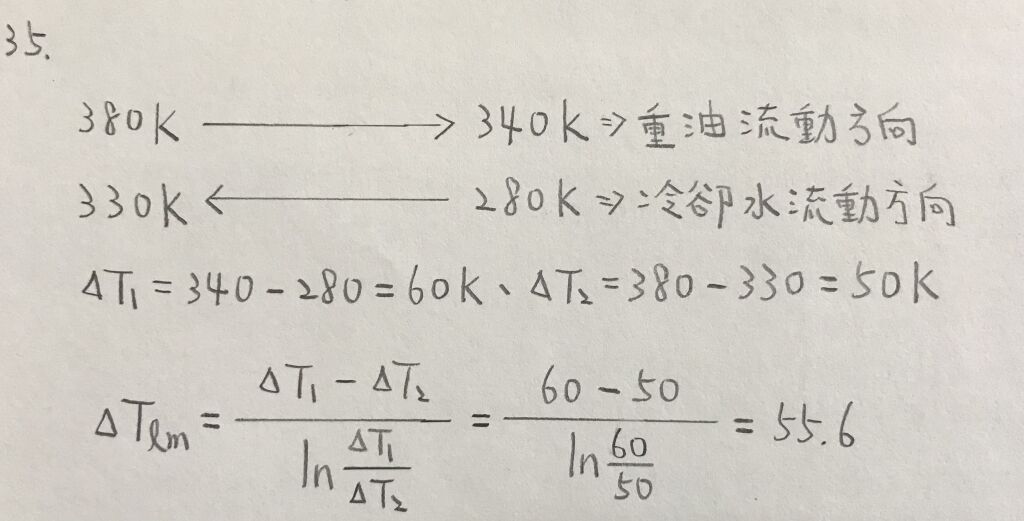 35.
380K ⟶ 340K ⇒ 重油流動方向
330K ⟵ 280K ⇒ 冷卻水流動方向
ΔT₁ = 340 - 280 = 60K、ΔT₂ = 380 - 330 = 50K
ΔTlm = (ΔT₁ - ΔT₂) / (ln ΔT₁/ΔT₂) = (60 - 50) / (ln 60/50) = 55.6